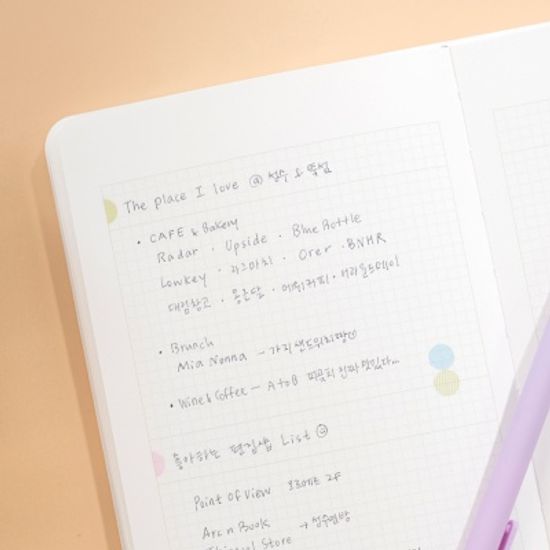 The place I love @ 성수 & 뚝섬
• CAFE & Bakery
Radar · Upside · Blue Bottle
Lowkey · 라그마치 · Orer · BNHR
대림창고 · 웅큰달 · 메쉬커피 · 어라운드데이
• Brunch
Mia Nonna - 가지샌드위치짱
• Wine & Coffee - A to B 피꼴피 진짜 맛있다...
좋아하는 편집샵 List
Point of View 오르에르 2F
Arc n Book → 성수연방
Store